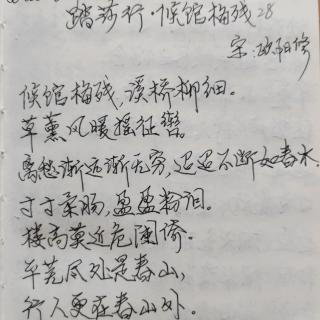 踏莎行·候馆梅残 28
宋:欧阳修
候馆梅残,溪桥柳细。
草薰风暖摇征辔。
离愁渐远渐无穷,迢迢不断如春水。
寸寸柔肠,盈盈粉泪。
楼高莫近危阑倚。
平芜尽处是春山,
行人更在春山外。